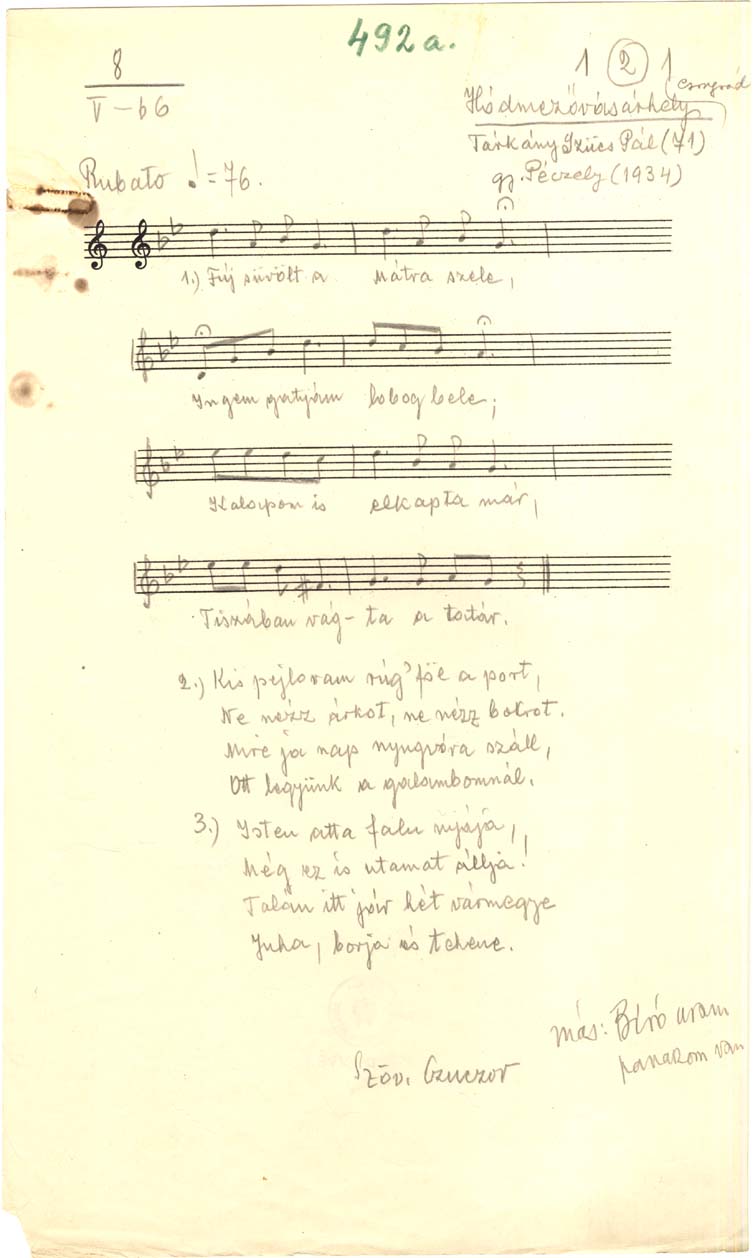 492a.
8
V – b6
1 2 1
Csongrád
Hódmezővásárhely
Tárkány Szücs Pál (71)
gy. Péczely (1934)
Rubato ♩ = 76.
1.) Fúj süvölt a Mátra szele,
Ingem gatyám lobog bele;
Kalapom is elkapta már,
Tiszában vág-ta a tatár.
2.) Kis pejlovam rúg' föl a port,
Ne nézz árkot, ne nézz bokrot.
Mire ja nap nyugvóra száll,
Ott legyünk a galambomnál.
3.) Isten atta falu nyája,
Még ez is utamat állja!
Talán itt jár hét vármegye
Juha, borja és tehene.
más: Bíró uram
panaszom van
Szöv. Czuczor